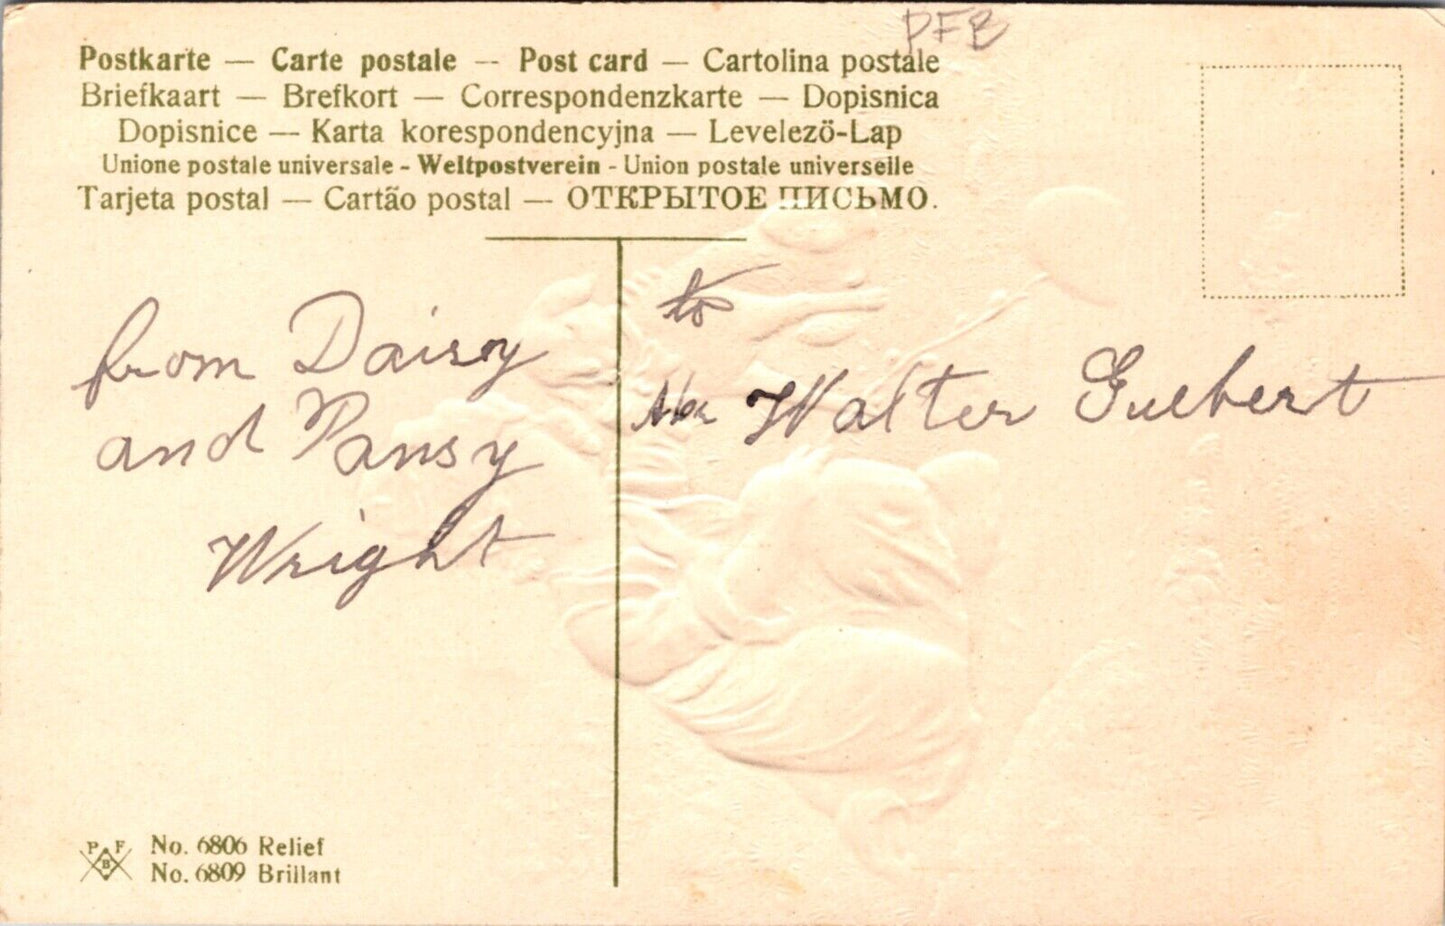 PFB
Postkarte — Carte postale -- Post card — Cartolina postale
Briefkaart — Brefkort — Correspondenzkarte — Dopisnica
Dopisnice — Karta korespondencyjna — Levelezö-Lap
Unione postale universale - Weltpostverein - Union postale universelle
Tarjeta postal — Cartão postal — ОТКРЫТОЕ ПИСЬМО.
from Daisy
and Pansy
Wright
to
Walter Guebert
P F B
No. 6806 Relief
No. 6809 Brillant